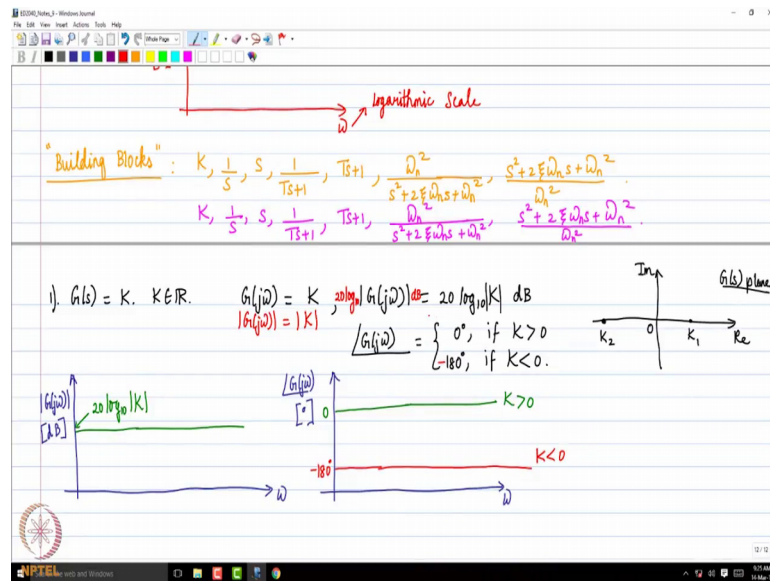 ED2040_Notes_9 - Windows Journal
File Edit View Insert Actions Tools Help
Whole Page
B I
ω
Logarithmic Scale
"Building Blocks" : K, 1/s, s, 1/(Ts+1), Ts+1, ωn²/(s²+2ξωns+ωn²), (s²+2ξωns+ωn²)/ωn².
K, 1/s, s, 1/(Ts+1), Ts+1, ωn²/(s²+2ξωns+ωn²), (s²+2ξωns+ωn²)/ωn²
1). G(s) = K. K∈ℝ. G(jω) = K, 20log10|G(jω)|dB = 20 log10|K| dB
|G(jω)| = |K|
∠G(jω) = { 0°, if K>0
-180°, if K<0.
Im
G(s) plane
K2 0 K1 Re
|G(jω)|
[dB]
20 log10 |K|
ω
∠G(jω)
[°]
0
K>0
-180°
K<0
ω
12 / 12
NPTEL
web and Windows
9:25 AM